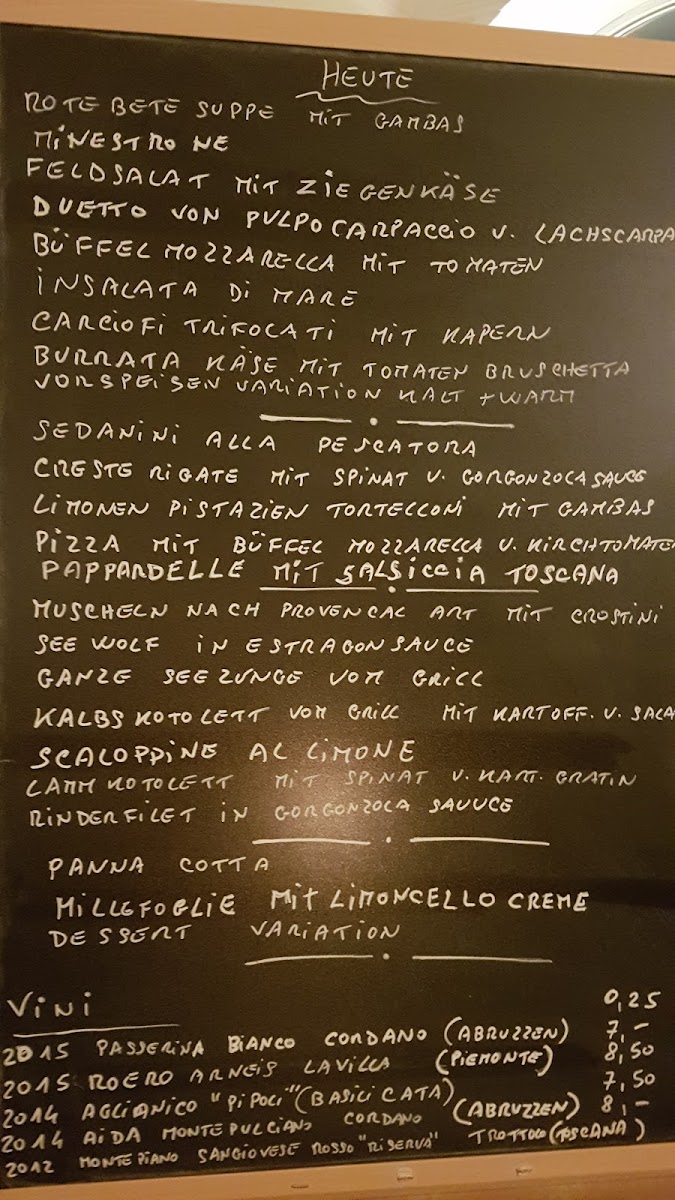 HEUTE
ROTE BETE SUPPE MIT GAMBAS
MINESTRONE
FELDSALAT MIT ZIEGENKÄSE
DUETTO VON PULPO CARPACCIO U. LACHSCARPA
BÜFFEL MOZZARELLA MIT TOMATEN
INSALATA DI MARE
CARCIOFI TRIFOCATI MIT KAPERN
BURRATA KÄSE MIT TOMATEN BRUSCHETTA
VORSPEISEN VARIATION KALT + WARM
SEDANINI ALLA PESCATORA
CRESTE RIGATE MIT SPINAT U. GORGONZOLASAUCE
LIMONEN PISTAZIEN TORTELLONI MIT GAMBAS
PIZZA MIT BÜFFEL MOZZARELLA U. KIRCHTOMATEN
PAPPARDELLE MIT SALSICCIA TOSCANA
MUSCHELN NACH PROVENCAL ART MIT CROSTINI
SEE WOLF IN ESTRAGONSAUCE
GANZE SEEZUNGE VOM GRILL
KALBSKOTOLETT VOM GRILL MIT KARTOFF. U. SALA
SCALOPPINE AL LIMONE
LAMMKOTOLETT MIT SPINAT U. KART. GRATIN
RINDERFILET IN GORGONZOLA SAUUCE
PANNA COTTA
MILLEFOGLIE MIT LIMONCELLO CREME
DESSERT VARIATION
VINI 0,25
2015 PASSERINA BIANCO CORDANO (ABRUZZEN) 7,-
2015 ROERO ARNEIS LAVILLA (PIEMONTE) 8,50
2014 AGLIANICO "PIPOLI" (BASILICATA) 7,50
2014 AIDA MONTEPULCIANO CORDANO (ABRUZZEN) 8,-
2012 MONTEPIANO SANGIOVESE ROSSO "RISERVA" TROTTOLO (TOSCANA)